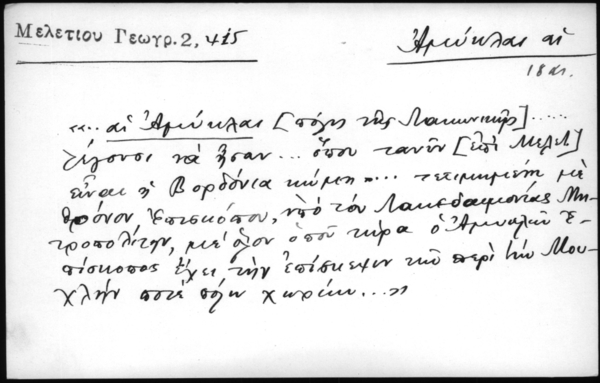 Μελετίου Γεωγρ. 2, 415
Ἀμύκλαι αἱ
18 αι.
«... αἱ Ἀμύκλαι [πόλις τῆς Λακωνικῆς].....
λέγουσι νὰ ἦσαν... ὅπου τανῦν [ἐπὶ Μελετ]
εἶναι ἡ Βορδόνια κώμη.... τετιμημένη μὲ
θρόνον Ἐπισκόπου, ὑπὸ τὸν Λακεδαιμονίας Μη-
τροπολίτην, μὲ ὅλον ὁποῦ τώρα ὁ Ἀμυκλῶν Ἐ-
πίσκοπος ἔχει τὴν ἐπίσκεψιν τῶν περὶ τὴν Μου-
χλὴν ποτὲ πόλιν χωρίων...»